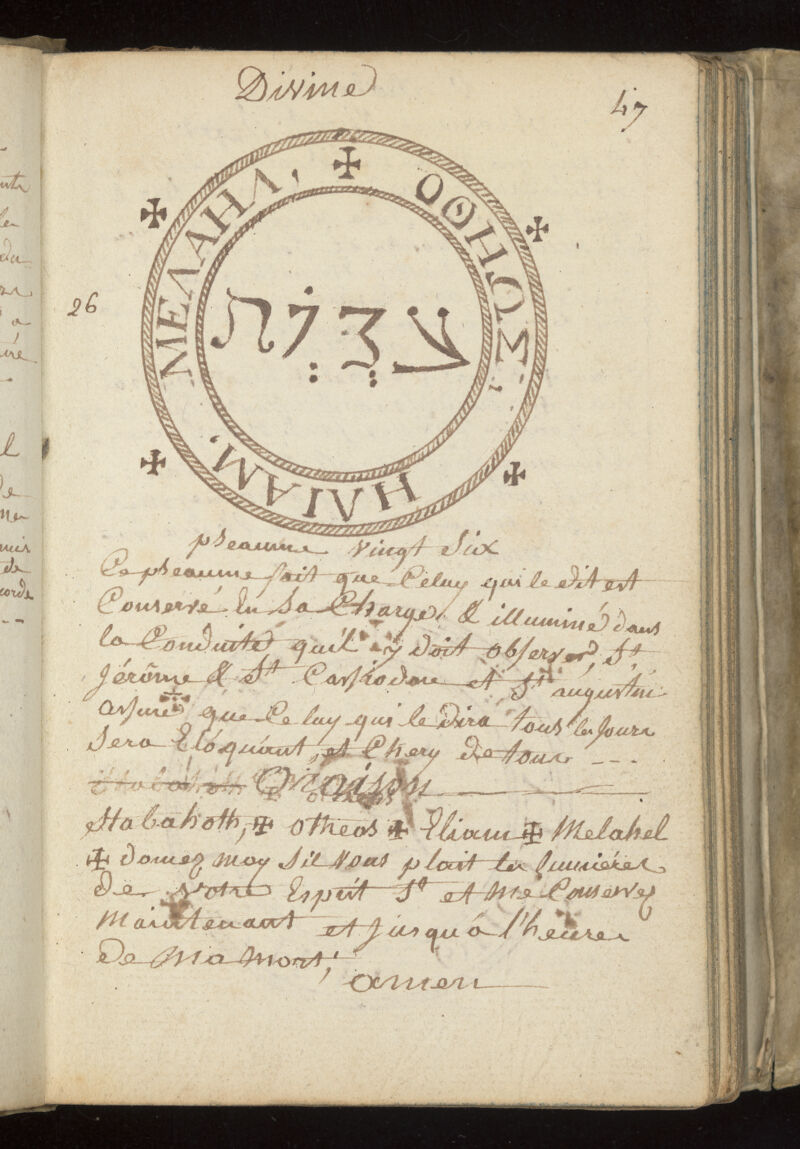 Divine
47
✠ ΟΘΗΩΣ,
ΗΛΙΑΜ.
ΜΕΛΑΗΛ,
26
pseaume vingt six
Ce pseaume fait que Celuy qui le dit est
Conservé En Sa Charge, & illuminé dans
la Conduite qu'il y doit observer, St
Jérôme & St Cassiodore et St augustin
assure que Celuy qui le dira tous les Jours
Sera Eloquant, et Chery de tous ---
Oraison
✠ otheos ✠ Eliam ✠ Melahel
✠ donnez moy Sil Vous plait les lumiéres
De Votre Esprit St et me Conservez
Maintenant et jusqu'a l'heure
De Ma Mort,
amen